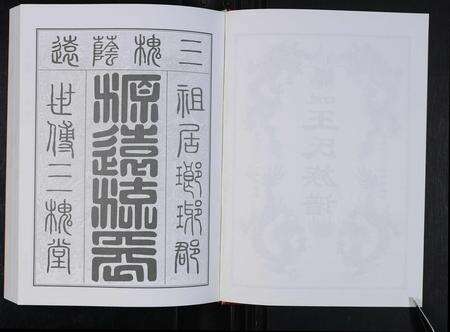 三槐蔭遠
祖居瑯琊郡
源遠流長
世傳三槐堂
王氏族谱